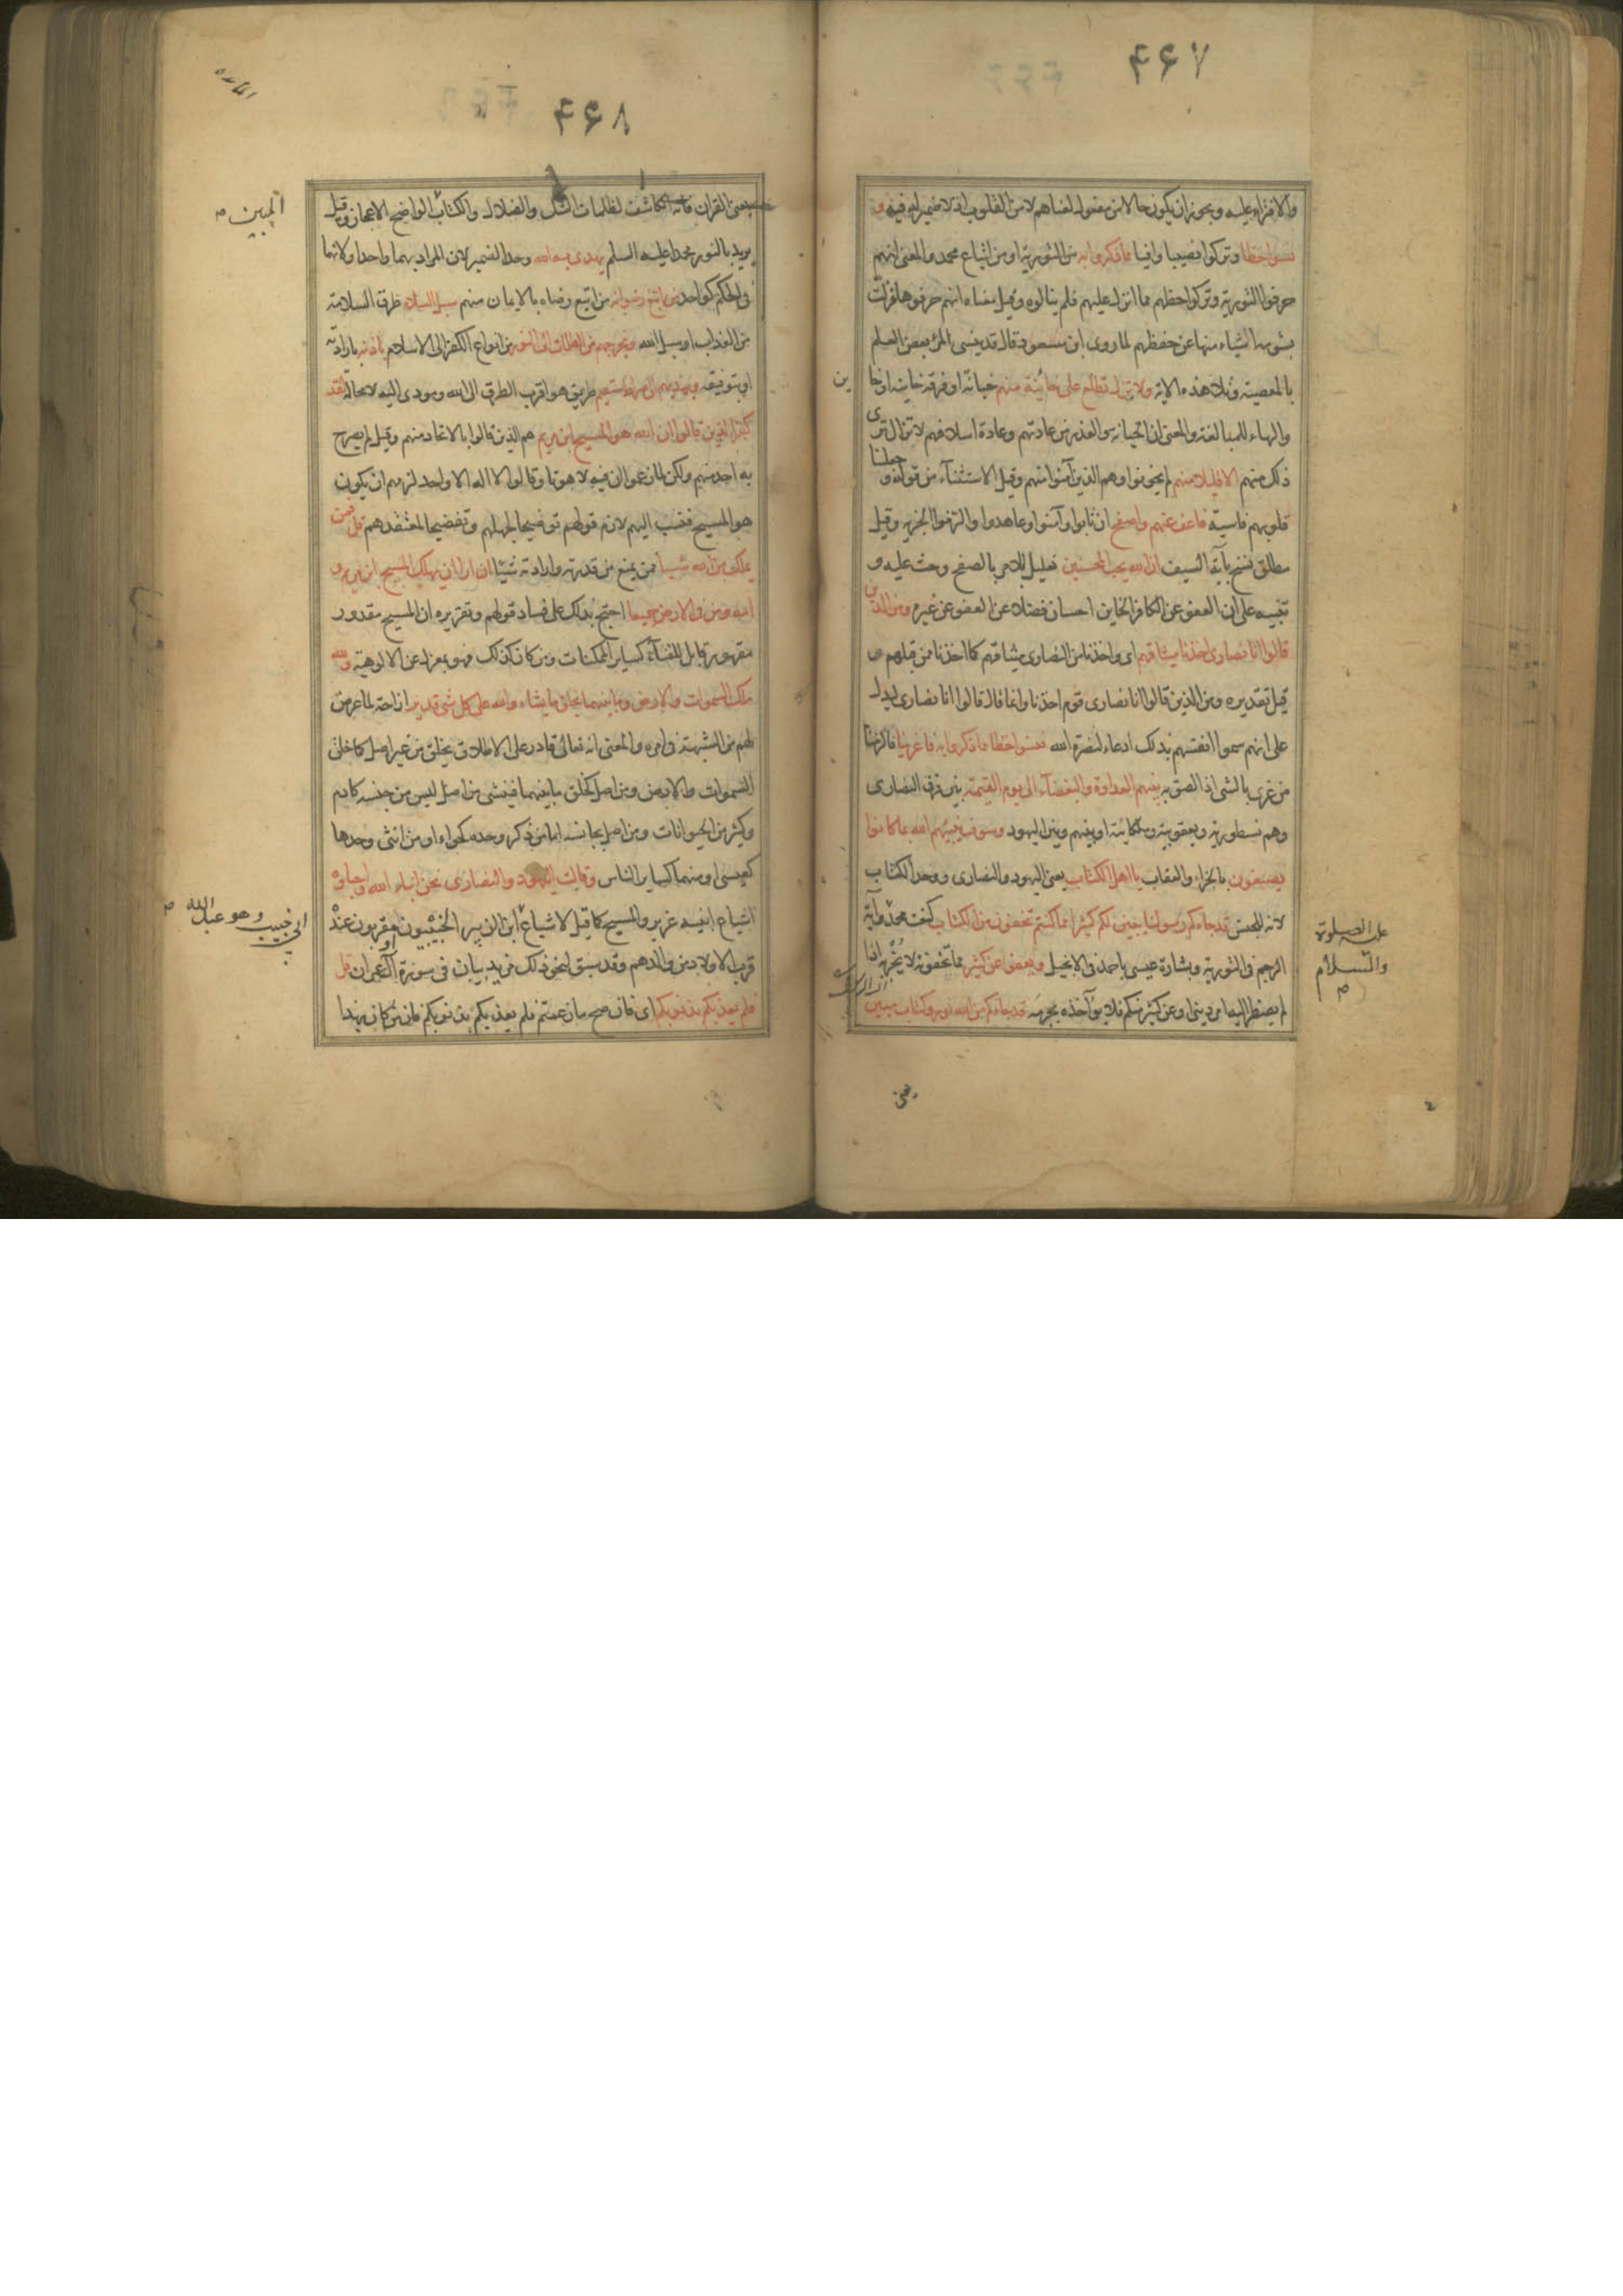 ۴۶۷
والافتراء عليه ويجوز ان يكون حالا من مفعول لعناهم لا من القلوب اذ لا ضمير له فيه و
نسوا حظا وتركوا نصيبا وافيا مما ذكروا به من التورية او من اتباع محمد والمعنى انهم
حرفوا التورية وتركوا حظهم مما انزل عليهم فلم ينالوه وقيل معناه انهم حرفوها فزلت
بشومه اشياء منها عن حفظهم لما روى ابن مسعود قال قد ينسى المرء بعض العلم
بالمعصية وتلا هذه الاية ولا تزال تطلع على خائنة منهم خيانة او فرقة خاينة او خا
ين
والهاء للمبالغة والمعنى ان الخيانة والغدر من عادتهم وعادة اسلافهم لا تزال ترى
ذلك منهم الا قليلا منهم لم يخونوا وهم الذين آمنوا منهم وقيل الاستثناء من قوله و جعلنا
قلوبهم قاسية فاعف عنهم واصفح ان تابوا وآمنوا وعاهدوا والتزموا الجزية وقيل
مطلق نسخ بآية السيف ان الله يحب المحسنين تعليل للامر بالصفح وحث عليه و
تنبيه على ان العفو عن الكافر الخاين احسان فضلا عن العفو عن غيره ومن الذين
قالوا انا نصارى اخذنا ميثاقهم اى واخذنا من النصارى ميثاقهم كما اخذنا ممن قبلهم و
قيل تقديره ومن الذين قالوا انا نصارى قوم اخذنا وانما قال قالوا انا نصارى ليدل
على انهم سموا انفسهم بذلك ادعاء لنصرة الله فنسوا حظا مما ذكروا به فاغرينا فالزمنا
من غرى بالشى اذا لصق به بينهم العداوة والبغضاء الى يوم القيمة بين فرق النصارى
وهم نسطورية ويعقوبية وملكائية او بينهم وبين اليهود وسوف ينبئهم الله بما كانوا
يصنعون بالجزاء والعقاب يا اهل الكتاب يعنى اليهود والنصارى ووحد الكتاب
لانه للجنس قد جاءكم رسولنا يبين لكم كثيرا مما كنتم تخفون من الكتاب كنعت محمد وآية
عليه الصلوة والسلام
الرجم فى التورية وبشارة عيسى باحمد فى الانجيل ويعفو عن كثير مما تخفونه لا يخبر به اذا
لم يضطر اليه امر دينى او عن كثير منكم فلا يؤآخذه بجرمه قد جاءكم من الله نور وكتاب مبين
يعنى
۴۶۸
المائده
يعنى القران فانه الكاشف لظلمات الشك والضلال والكتاب الواضح الاعجاز وقيل
المبين
يريد بالنور محمدا عليه السلم يهدى به الله وحد الضمير لان المراد بهما واحد او لانهما
فى الحكم كواحد من اتبع رضوانه من اتبع رضاه بالايمان منهم سبل السلام طرق السلامة
من العذاب او سبل الله ويخرجهم من الظلمات الى النور من انواع الكفر الى الاسلام باذنه بارادته
او بتوفيقه ويهديهم الى صراط مستقيم طريق هو اقرب الطرق الى الله ومودى اليه لا محالة لقد
كفر الذين قالوا ان الله هو المسيح ابن مريم هم الذين قالوا بالاتحاد منهم وقيل لم يصرح
به احد منهم ولكن لما زعموا ان فيه لاهوتا وقالوا لا اله الا واحد لزمهم ان يكون
هو المسيح فنسب اليهم لازم قولهم توضيحا لجهلهم وتفضيحا لمعتقدهم قل فمن
يملك من الله شيئا فمن يمنع من قدرته وارادته شيئا ان اراد ان يهلك المسيح ابن مريم و
امه ومن فى الارض جميعا احتج بذلك على فساد قولهم وتقريره ان المسيح مقدور
مقهور قابل للفناء كساير الممكنات ومن كان كذلك فهو بمعزل عن الالوهية ولله
ملك السموات والارض وما بينهما يخلق ما يشاء والله على كل شى قدير ازاحة لما عرض
لهم من الشبهة فى امره والمعنى انه تعالى قادر على الاطلاق يخلق من غير اصل كما خلق
السموات والارض ومن اصل كخلق ما بينهما فينشى من اصل ليس من جنسه كادم
وكثير من الحيوانات ومن اصل يجانسه اما من ذكر وحده كحواء او من انثى وحدها
كعيسى او منهما كساير الناس وقالت اليهود والنصارى نحن ابناء الله واحباؤه
اشياع ابنيه عزير والمسيح كما قيل لاشياع ابن الزبير الخبيبيون او مقربون عنده
ابى خبيب وهو عبد الله
قرب الاولاد من والدهم وقد سبق لنحو ذلك مزيد بيان فى سورة آل عمران قل
فلم يعذبكم بذنوبكم اى فان صح ما زعمتم فلم يعذبكم بذنوبكم فان من كان بهذا